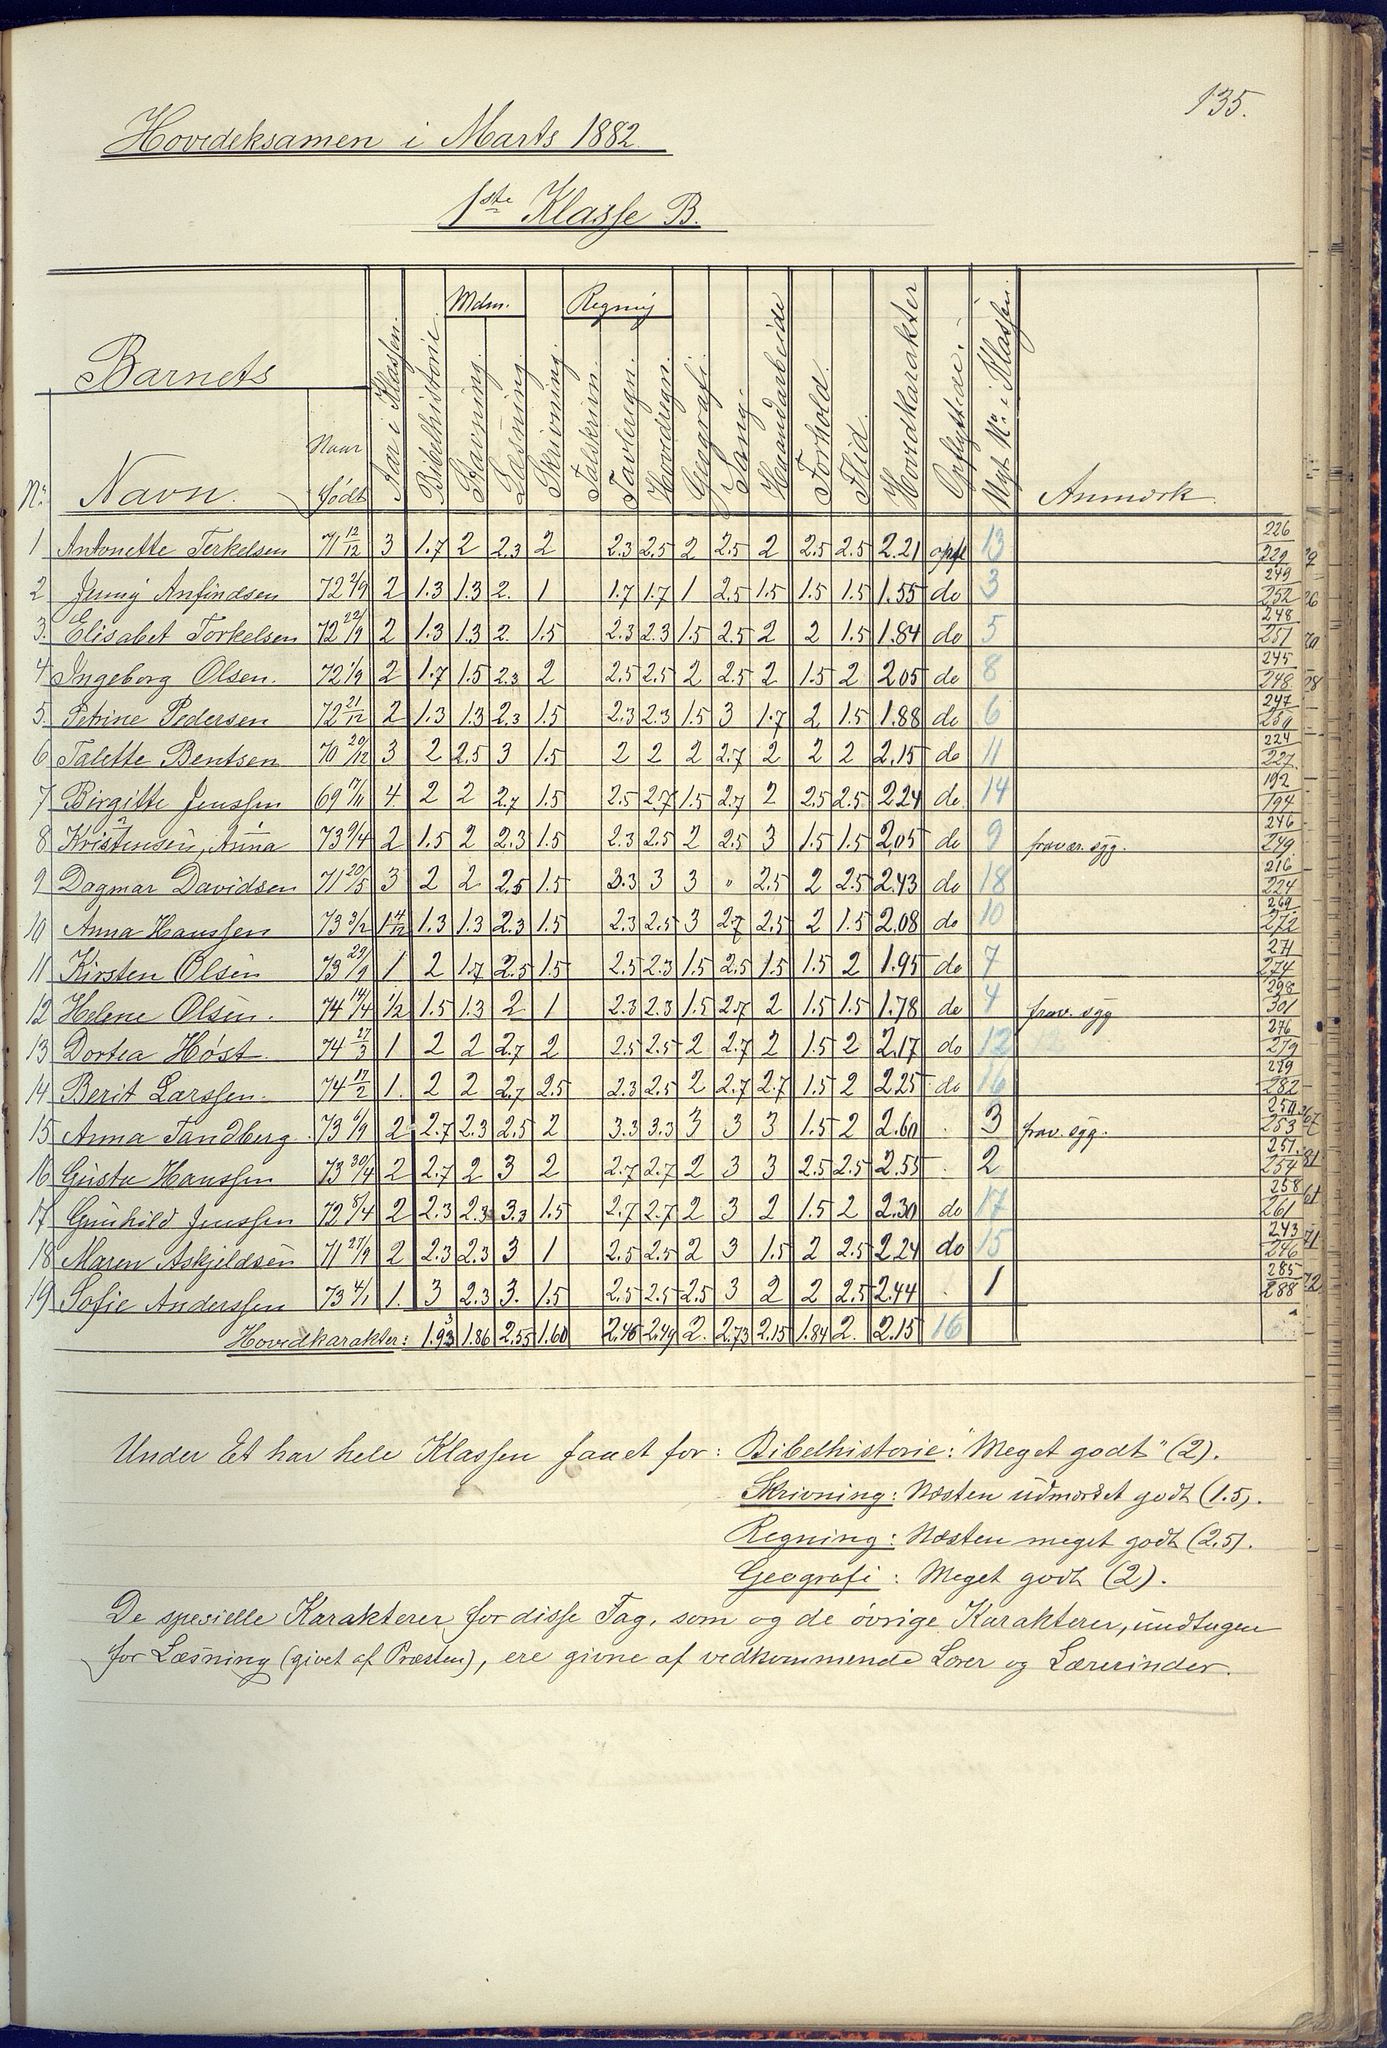 135.
Hovedeksamen i Marts 1882.
1ste Klasse B.
Barnets
Mdsm. Regning
No. Navn. Naar født Aar i Klassen. Bibelhistorie. Stavning. Læsning. Skrivning. Talskrivn. Tavleregn. Hovedregn. Geografi. Sang. Haandarbeide Forhold. Flid. Hovedkarakter Opflyttede. Nyt No. i Klassen. Anmærk.
1 Antonette Terkelsen 71 12/12 3 1.7 2 2.3 2 2.3 2.5 2 2.5 2 2.5 2.5 2.21 opfl 13 226/229
2 Jenny Anfindsen 72 2/9 2 1.3 1.3 2. 1 1.7 1.7 1 2.5 1.5 1.5 1.5 1.55 do 3 249/252
3. Elisabet Torkelsen 72 22/9 2 1.3 1.3 2. 1.5 2.3 2.3 1.5 2.5 2 2 1.5 1.84 do 5 248/251
4 Ingeborg Olsen. 72 1/9 2 1.7 1.5 2.3 2 2.5 2.5 2 2.5 2 1.5 2 2.05 do 8 245/248
5. Petrine Pedersen 72 21/12 2 1.3 1.3 2.3 1.5 2.3 2.3 1.5 3 1.7 2 1.5 1.88 do 6 247/250
6 Talette Bentsen 70 20/12 3 2 2.5 3 1.5 2 2 2 2.7 2 2 2 2.15 do 11 224/227
7 Birgitte Jenssen 69 17/11 4. 2 2 2.7 1.5 2.5 2.7 1.5 2.7 2 2.5 2.5 2.24 do. 14 192/194
8 Kristensen, Anna 73 9/4 2 1.5 2 2.3 1.5 2.3 2.5 2 2.5 3 1.5 1.5 2.05 do 9 fravær. syg. 246/249
9 Dagmar Davidsen 71 20/5 3 2 2 2.5 1.5 3.3 3 3 " 2.5 2 2.5 2.43 do 18 216/224
10 Anna Hanssen 73 3/2 1 4/12 1.3 1.3 2.3 1.5 2.3 2.5 3 2.7 2.5 2 1.5 2.08 do 10 269/272
11 Kirsten Olsen 73 29/9 1 2 1.7 2.5 1.5 2.5 2.3 1.5 2.5 1.5 1.5 2 1.95 do 7 271/274
12 Helene Olsen. 74 14/4 1/2 1.5 1.3 2 1 2.3 2.3 1.5 2.7 2 1.5 1.5 1.78 do 4 frav. syg 298/301
13 Dortea Høst 74 27/3 1 2 2 2.7 2 2.5 2.5 2 2.7 2 1.5 2 2.17 do 12 276/279
14 Berit Larssen. 74 17/2 1. 2 2 2.7 2.5 2.3 2.5 2 2.7 2.7 1.5 2 2.25 do 16 279/282
15 Anna Tandberg. 73 6/9 2 2.7 2.3 2.5 2 3.3 3.3 3 3 3 1.5 2 2.60 . 3 frav. syg. 250/253
16 Gusta Hanssen 73 30/4 2 2.7 2 3 2 2.7 2.7 2 3 3 2.5 2.5 2.55 . 2 251/254
17 Gunhild Jenssen 72 5/4 2 2.3 2.3 3.3 1.5 2.7 2.7 2 3 2 1.5 2 2.30 do 17 258/261
18 Maren Askjeldsen 71 27/9 2 2.3 2.3 3 1 2.5 2.5 2 3 1.5 2 2.5 2.24 do 15 243/246
19 Sofie Anderssen 73 4/1 1. 3 2.3 3. 1.5 2.5 2.5 2.5 3 2 2 2.5 2.44 . 1 285/288
Hovedkarakter: 1.93 1.86 2.55 1.60 2.46 2.49 2. 2.73 2.15 1.84 2. 2.15 16
Under Et har hele Klassen faaet for: Bibelhistorie: "Meget godt" (2).
Skrivning: Næsten udmærket godt (1.5).
Regning: Næsten meget godt (2.5).
Geografi: Meget godt (2).
De specielle Karakterer for disse Fag, som og de øvrige Karakterer, undtagen
for Læsning (givet af Præsten), ere givne af vedkommende Lærer og Lærerinder.